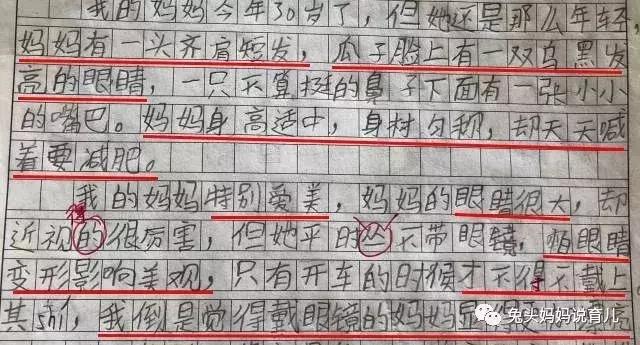 我的妈妈今年30岁了，但她还是那么年轻，
妈妈有一头齐肩短发，瓜子脸上有一双乌黑发
高的眼睛，一只不算挺的鼻子下面有一张小小
的嘴巴。妈妈身高适中，身材匀称，却天天喊
着要减肥。
我的妈妈特别爱美，妈妈的眼睛很大，却
得
近视的很厉害，但她平时从不带眼镜，怕眼睛
变形影响美观，只有开车的时候才不得不戴上
其shí，我倒是觉得戴眼镜的妈妈显得
兔头妈妈说育儿